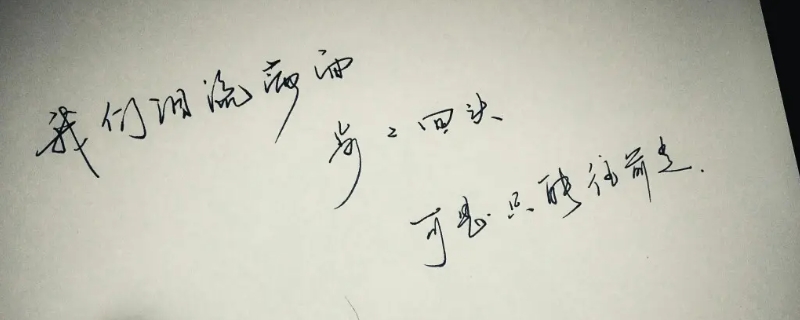 我们泪流满面
步々回头
可是只能往前走.